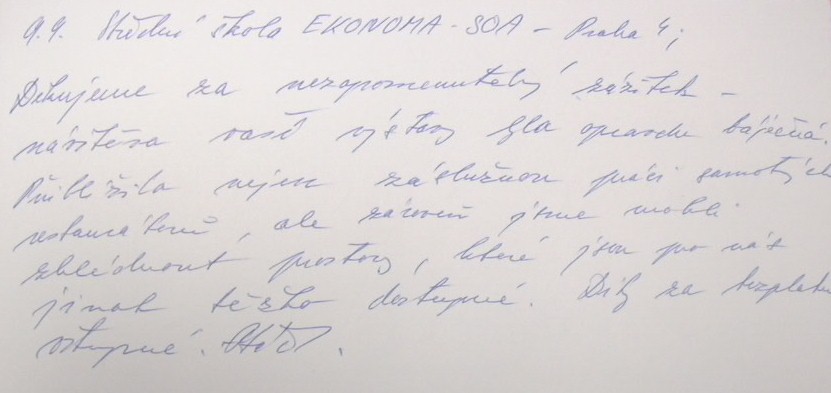 9.9. Střední škola EKONOMA-SOA - Praha 4;
Děkujeme za nezapomenutelný zážitek -
návštěva vaší výstavy byla opravdu báječná.
Přiblížila nejen záslužnou práci samotných
restaurátorů, ale zároveň jsme mohli
zhlédnout prostory, které jsou pro nás
jinak těžko dostupné. Díky za bezplatné
vstupné.